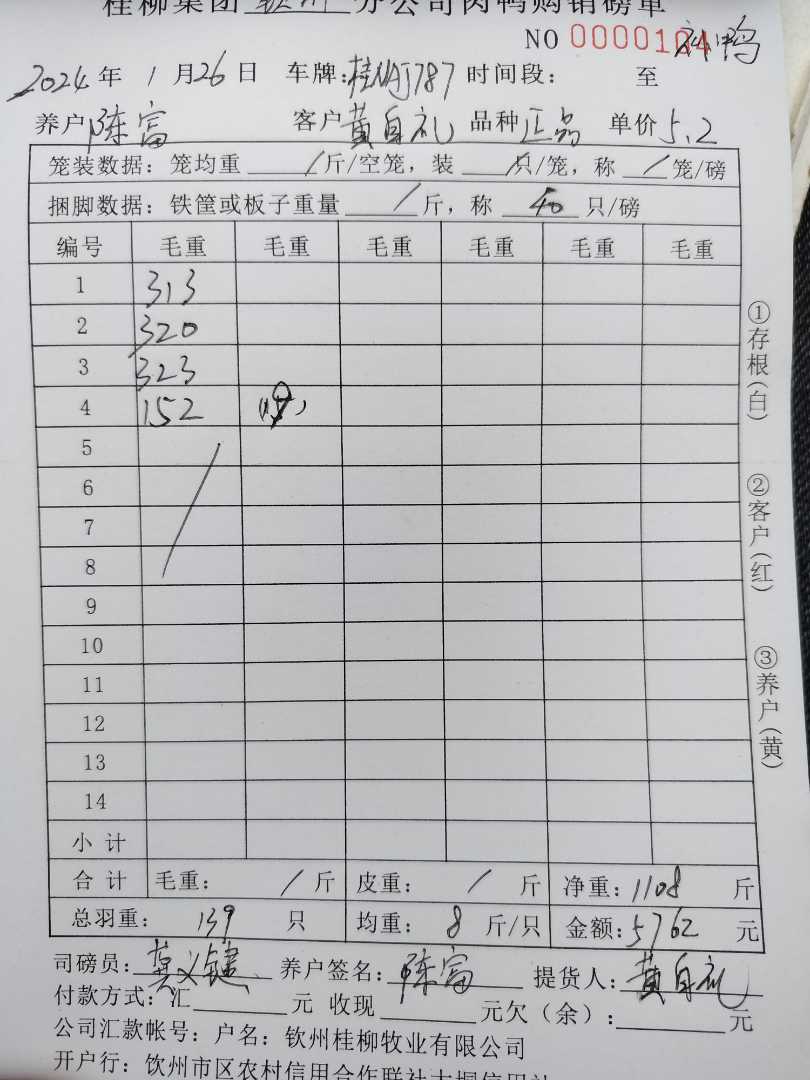 桂柳集团 钦州 分公司肉鸭购销磅单
NO 0000104
2024年 1月26日 车牌:桂NAJ787 时间段: 至
养户 陈富 客户 黄自礼 品种 正品 单价 5.2
笼装数据: 笼均重 / 斤/空笼, 装 / 只/笼, 称 / 笼/磅
捆脚数据: 铁筐或板子重量 / 斤, 称 40 只/磅
编号 毛重 毛重 毛重 毛重 毛重 毛重
1 313
2 320
3 323
4 152
5
6
7
8
9
10
11
12
13
14
小计
合计 毛重: / 斤 皮重: / 斤 净重: 1108 斤
总羽重: 139 只 均重: 8 斤/只 金额: 5762 元
司磅员: 莫义键 养户签名: 陈富 提货人: 黄自礼
付款方式: 汇 元 收现 元欠(余): 元
公司汇款帐号: 户名: 钦州桂柳牧业有限公司
开户行: 钦州市区农村信用合作联社大垌信用社
①存根(白)
②客户(红)
③养户(黄)